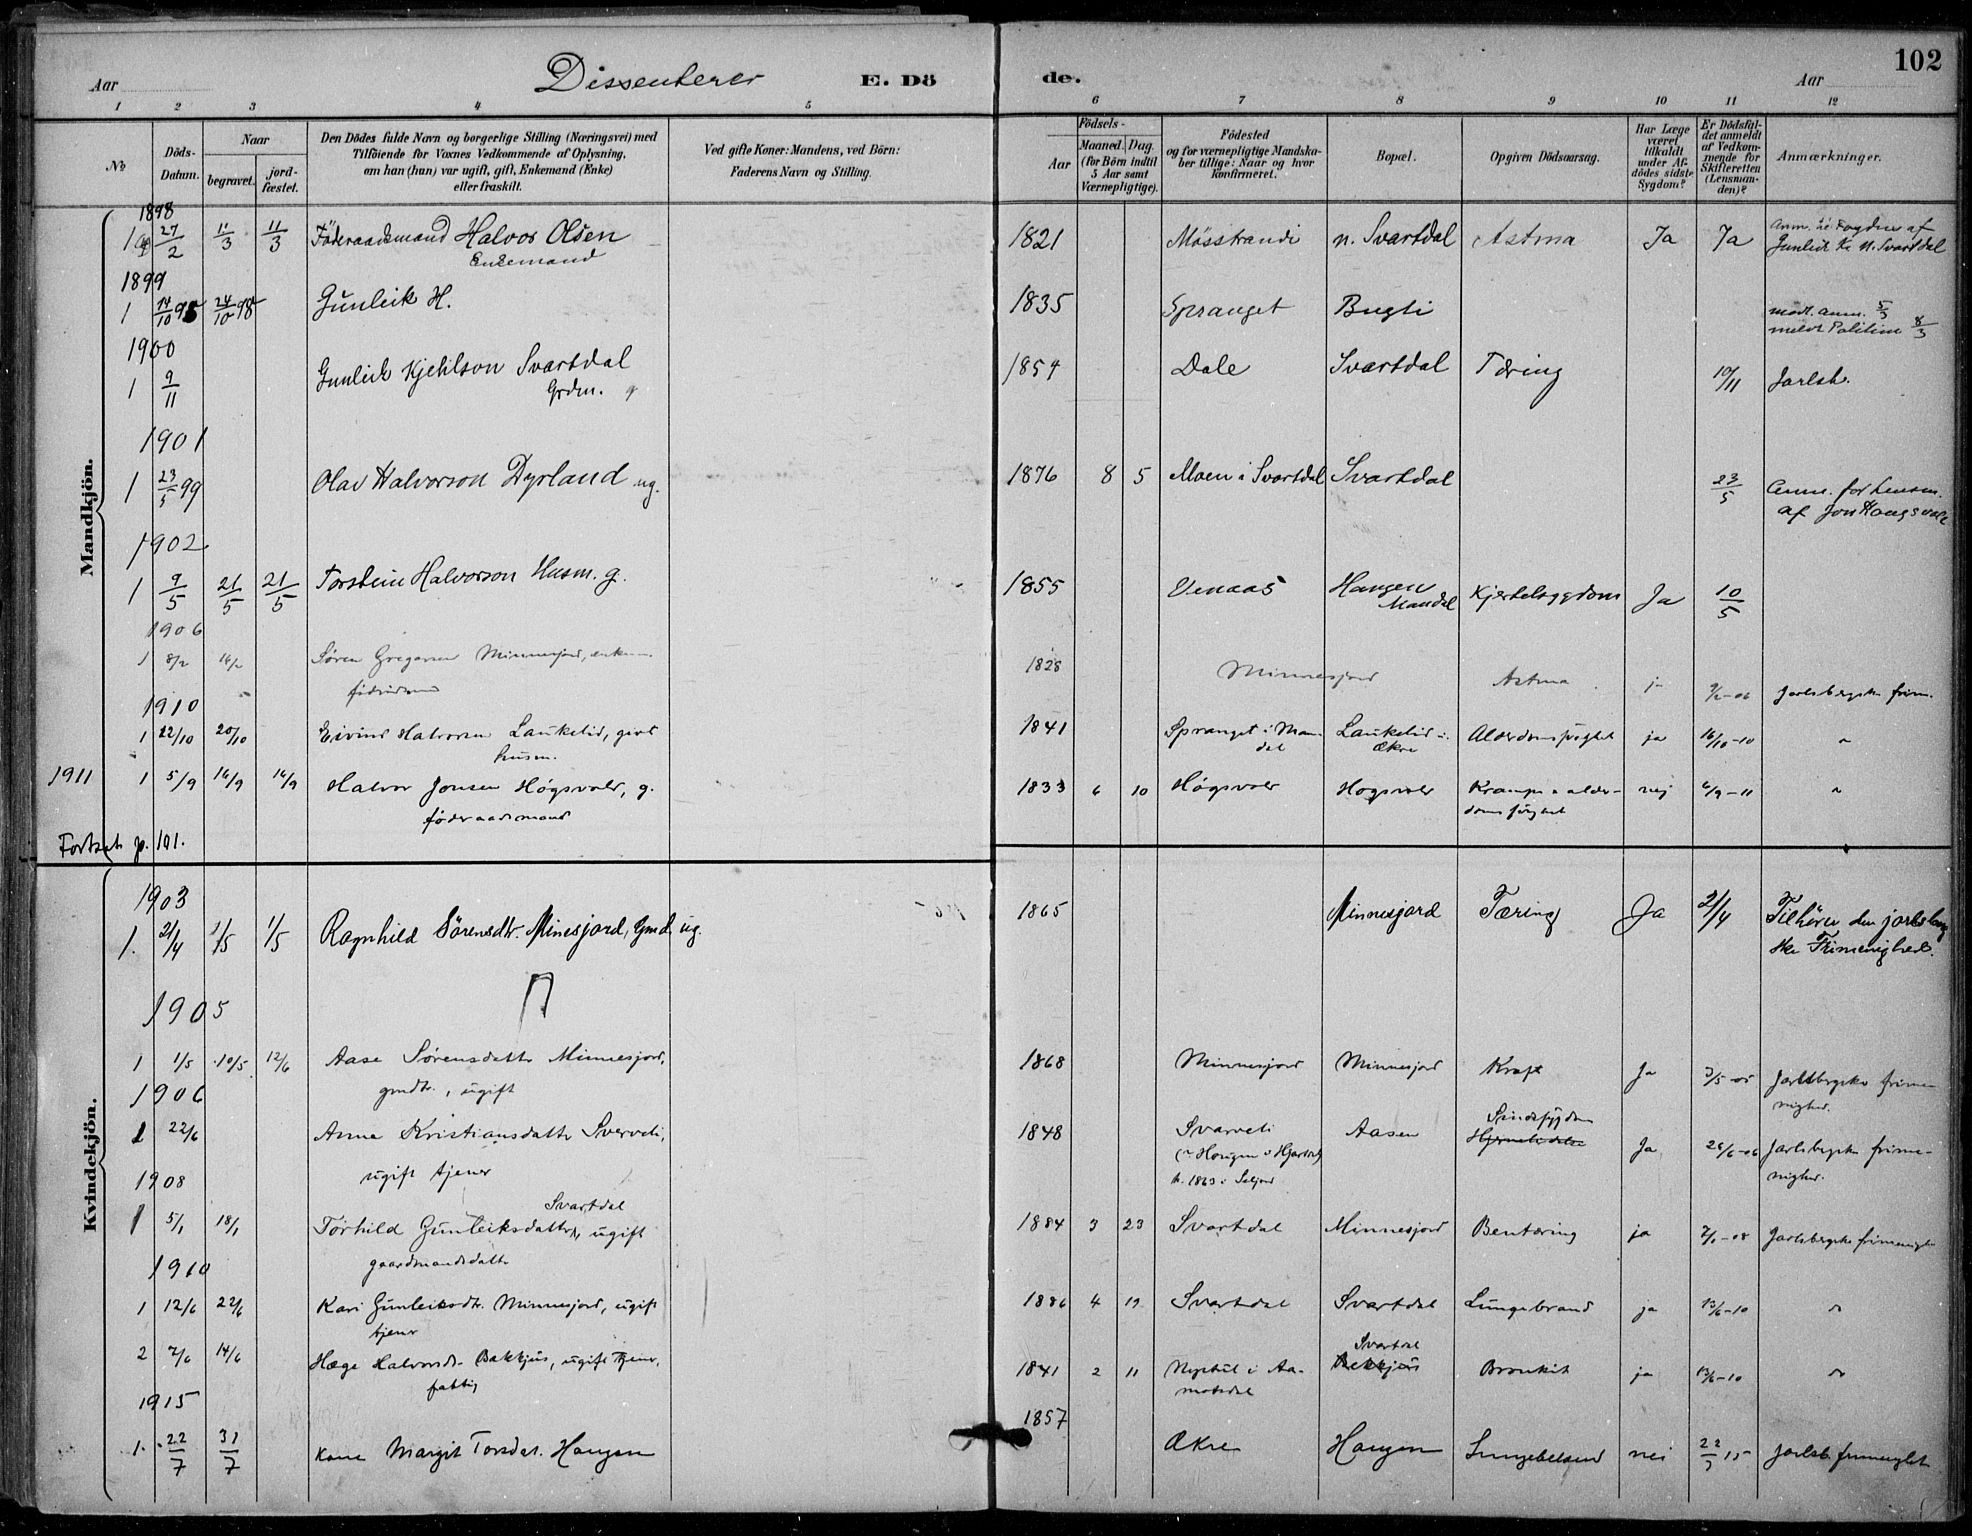 102
Aar Dissenterer E. Dö de. Aar
1 2 3 4 5 6 7 8 9 10 11 12
No
Döds-Datum.
Naar
begravet.
jordfæstet.
Den Dödes fulde Navn og borgerlige Stilling (Næringsvei) med
Tilföiende for Voxnes Vedkommende af Oplysning,
om han (hun) var ugift, gift, Enkemand (Enke)
eller fraskilt.
Ved gifte Koner: Mandens, ved Börn:
Faderens Navn og Stilling.
Födsels-
Aar
Maaned. Dag.
(for Börn indtil
5 Aar samt
Værnepligtige).
Födested
og for værnepligtige Mandska-
ber tillige: Naar og hvor
konfirmeret.
Bopæl.
Opgiven Dödsaarsag.
Har Læge
været
tilkaldt
under Af-
dödes sidste
Sygdom?
Er Dödsfal-
det anmeldt
af Vedkom-
mende for
Skifteretten
(Lensman-
den)?
Anmærkninger.
Mandkjön.
1898
1 27/2 11/3 11/3 Föderaadsmand Halvor Olsen 1821 Mösstrand n. Svartdal Astma Ja Ja
Enkemand
Gunleik K. N. Svartdal
1899
1 14/10 98 24/10 98 Gunleik H. 1835 Spranget Bugti anm. 5/3
8/3
1900
1 9/11 Gunleik Kjetilson Svartdal 1854 Dale Svartdal Tæring 10/11 Jarlsb.
Grdm. g
1901
1 23/5 99 Olav Halvorson Dyrland ug. 1876 8 5 Moen i Svartdal Svartdal 23/5 Anm. for Lensm.
af Jon Haugsvall
1902
1 9/5 21/5 21/5 Torstein Halvorson Husm. g. 1855 Venaas Haugen Kjertelsygdom Ja 10/5
Mandal
1906
1 8/2 14/2 Søren Gregarsen Minnesjord, enkem. 1828 Minnesjord Astma ja 9/2-06 Jarlsbergske frim.
1910
1 22/10 Eivind Halvorsen Laukelid, givt 1841 Spranget i Man- Laukelid i Alderdomssvaghet ja 16/10-10 "
husm. dal Økre
1911 1 5/9 14/9 14/9 Halvor Jonsen Högsvoll, g. 1833 6 10 Högsvoll Høgsvoll Krampe o alder- nei 6/9-11 "
føderaadsmand
Fortsat p. 101.
Kvindekjön.
1903
1. 21/4 1/5 1/5 Ragnhild Sörensdtr. Minesjord, Gmd. ug. 1865 Minnesjord Tæring Ja 21/4 Tilhörer den jarlsberg
ske Frimenighed.
1905
1 1/5 10/5 12/6 Aase Sørensdatter Minnesjord, 1868 Minnesjord Minnesjord Kræft Ja 3/5-05 Jarlsbergske frime-
gmdtr., ugift nighed.
1906
1 22/6 Anna Kristiansdatter Sverveli, 1848 Svarveli Aasen Sindssygdom Ja 26/6-06 Jarlsbergske frime-
ugift tjener (o Haugen i Hjartdal) Hjernelidelse nighed.
k. 1863 i Seljord
1908
Svartdal
1 5/1 18/1 Torhild Gunleiksdatter, ugift 1884 3 23 Svartdal Minnesjord Bentæring ja 7/1-08 Jarlsbergske frimenighet
gaardmandsdatter
1910
1 12/6 22/6 Kari Gunleiksdtr. Minnesjord, ugift 1886 4 19 Svartdal Svartdal Lungebrand ja 13/6-10 "
tjener
2 7/6 14/6 Hæge Halvorsdtr. Bakkjus, ugift tjener, 1841 2 11 i Aa- Svartdal Bronkit ja 13/6-10 "
fattig motsdal Bekkjus
1915
1. 22/7 31/7 Kone Margit Torsdat. Haugen 1857 Økre Haugen Lungebetænd nei 22/7 15 Jarlsb. frimenighet